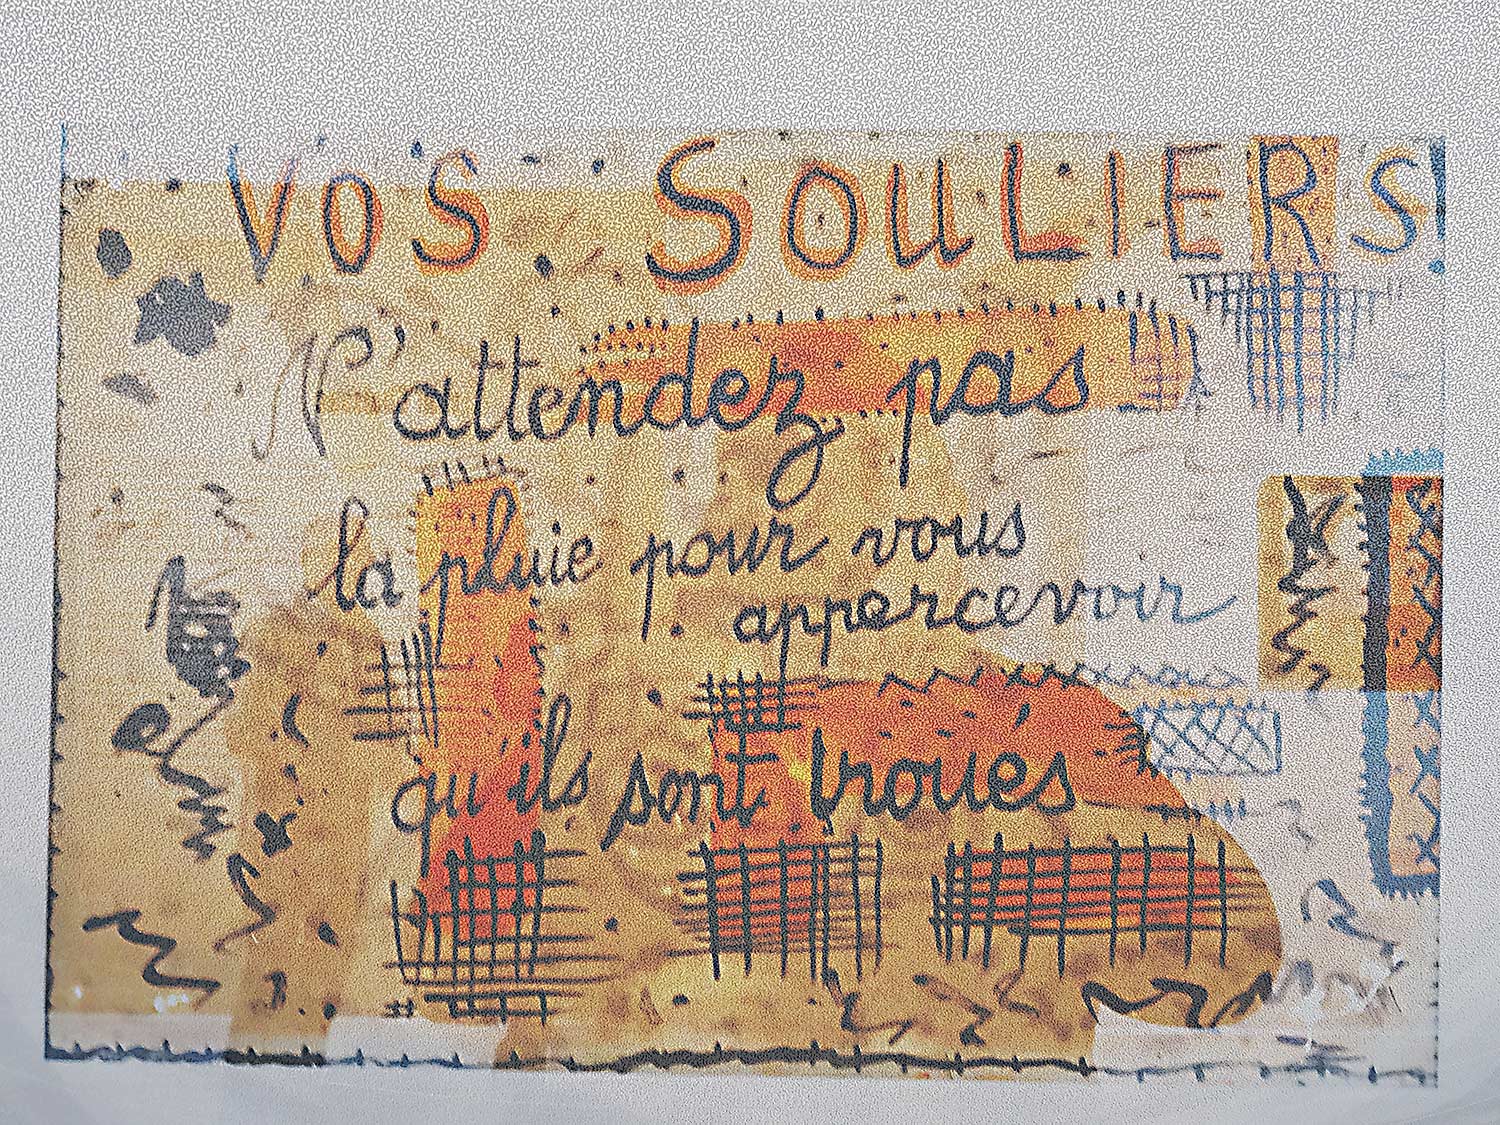 VOS SOULIERS!
N'attendez pas
la pluie pour vous
appercevoir
qu'ils sont troués